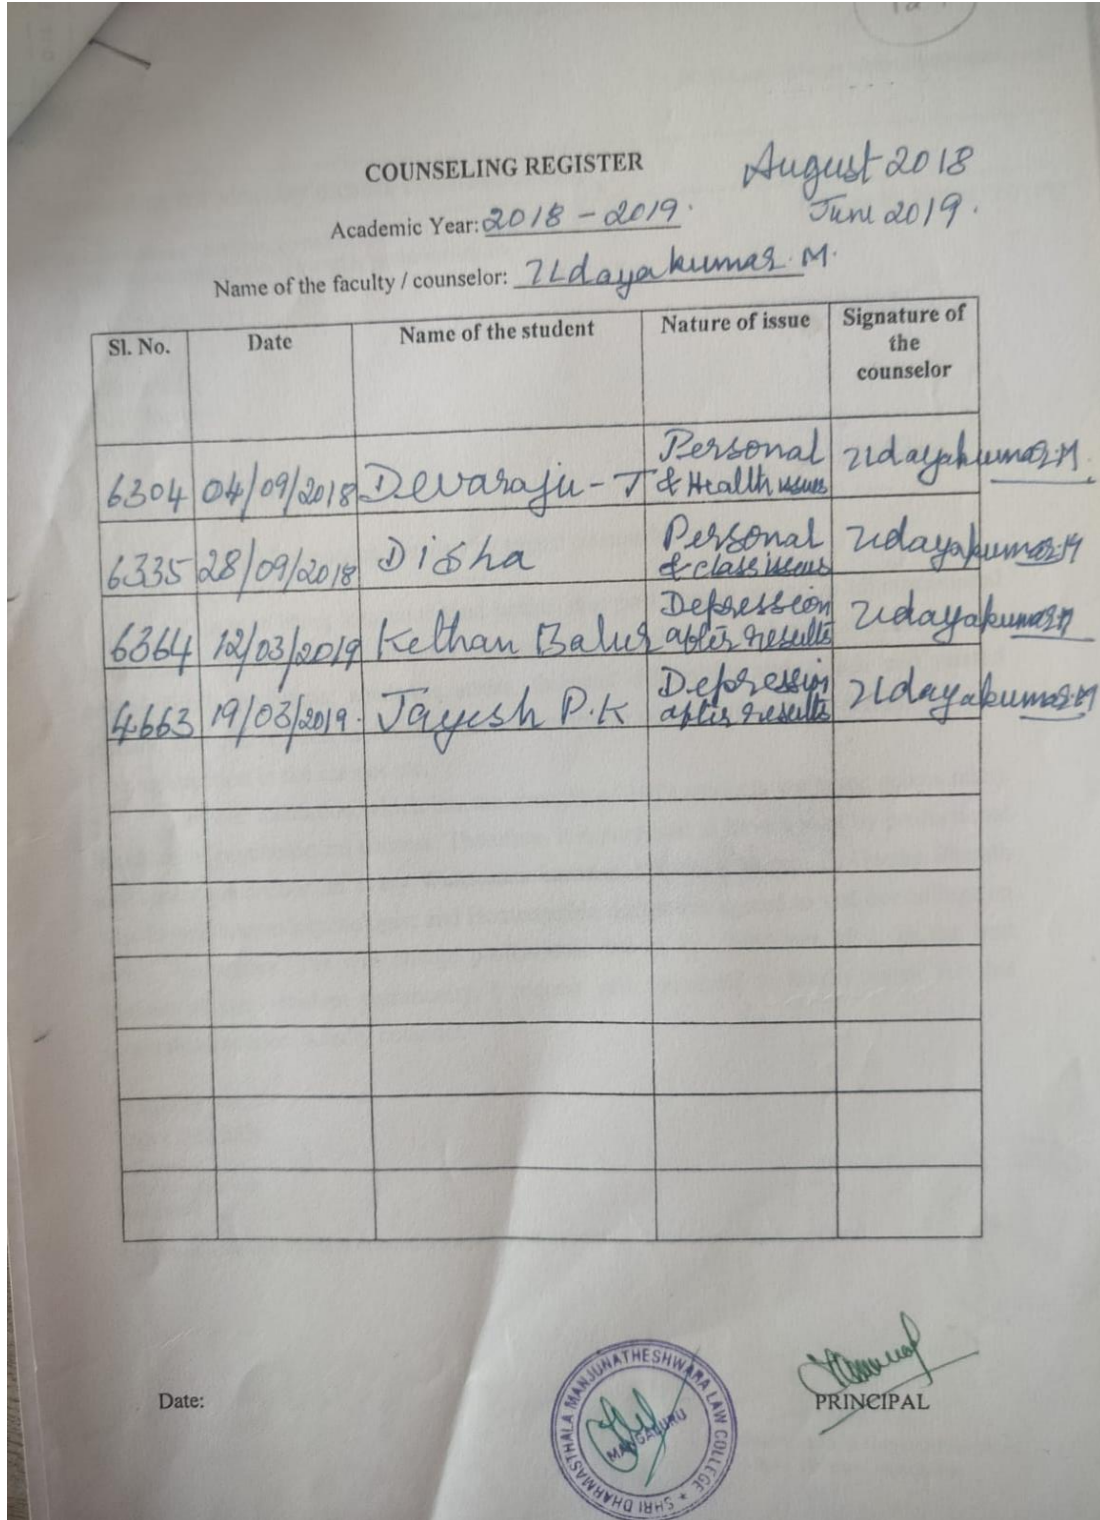 COUNSELING REGISTER
August 2018
June 2019.
Academic Year: 2018 - 2019.
Name of the faculty / counselor: Udayakumar. M.
Sl. No. Date Name of the student Nature of issue Signature of the counselor
6304 04/09/2018 Devaraju - T Personal & Health issues Udayakumar.M
6335 28/09/2018 Disha Personal & class issues Udayakumar.M
6364 12/03/2019 Kethan Balur Depression after results Udayakumar.M
4663 19/03/2019. Jayesh P.K Depression after results Udayakumar.M
Date:
PRINCIPAL
SHRI DHARMASTHALA MANJUNATHESHWARA LAW COLLEGE
MANGALURU